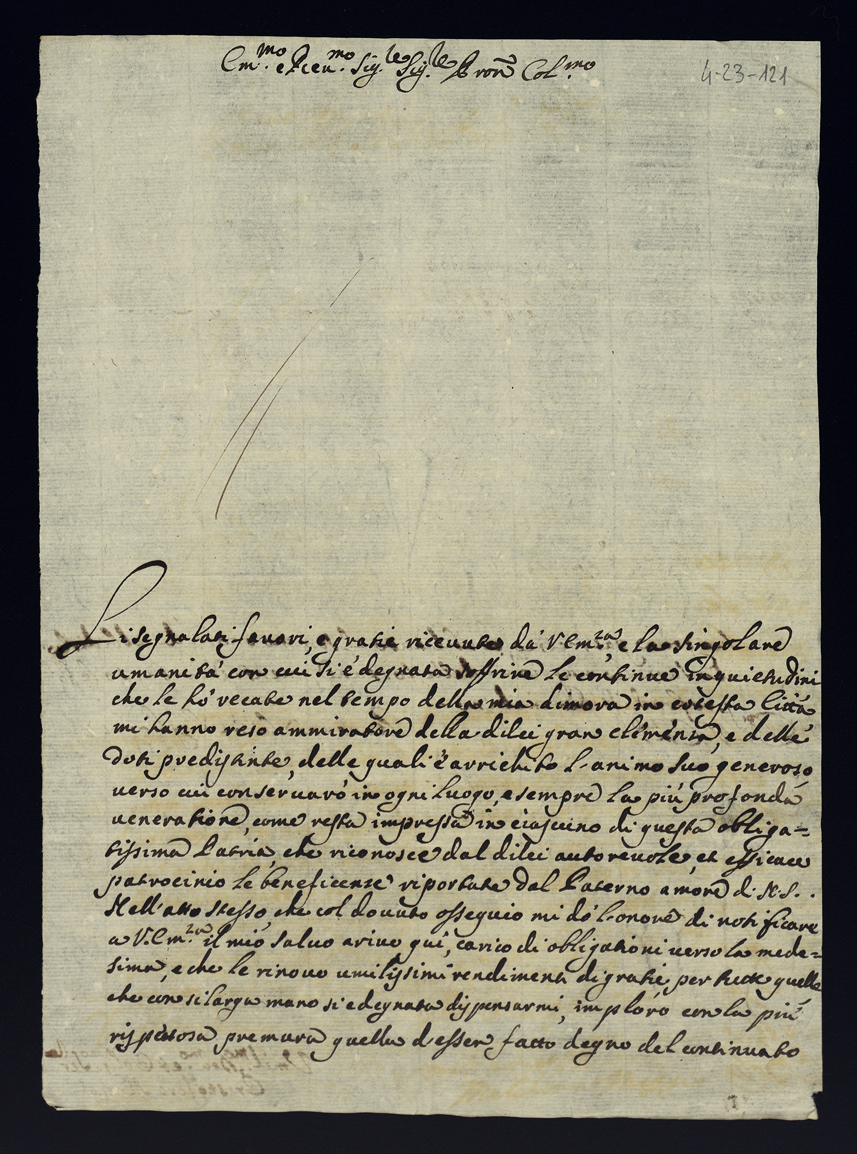 Em.mo e Rceu.mo Sig.re Sig.re Pron Col.mo
4-23-121
Li segnalati favori, e gratie riceuute da V. Em.za e la singolare
umanità con cui si è degnata soffrire le continue inquietudini
che le hò recate nel tempo della mia dimora in cotesta Città
mi hanno reso ammiratore della dilei gran clemenza, e delle
doti predistinte, delle quali è arrichito l'animo suo generoso
verso cui conseruarò in ogni luogo, e sempre la più profonda
veneratione, come resta impressa in ciascuno di questa obliga=
tissima Patria, che riconosce dal dilei autoreuole, et efficace
patrocinio le beneficenze riportate dal Paterno amore di N. S.
Nell'atto stesso, che col douuto ossequio mi dò l'onore di notificare
a V. Em.za il mio saluo ariuo quì, carico di obligationi verso la mede=
sima, e che le rinouo umilissimi rendimenti di gratie per tutte quelle
che con si larga mano si è degnata dispensarmi, imploro con la più
rispettosa premura quella d'esser fatto degno del continuato